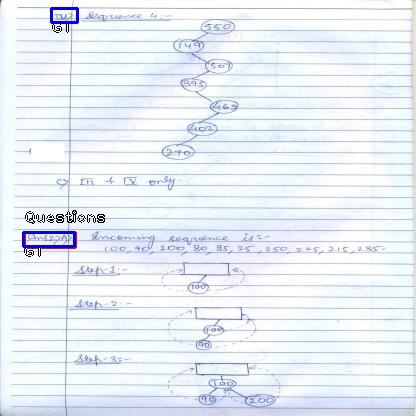 IV> Sequence 4:-
G1
550
149
507
395
463
402
270
c> III & V only.
Questions
Ans27A> Incoming sequence is:-
G1
100, 90, 200, 80, 85, 25, 250, 225, 215, 235.
Step-1:
100
Step-2:-
100
90
Step-3:-
100
90 200